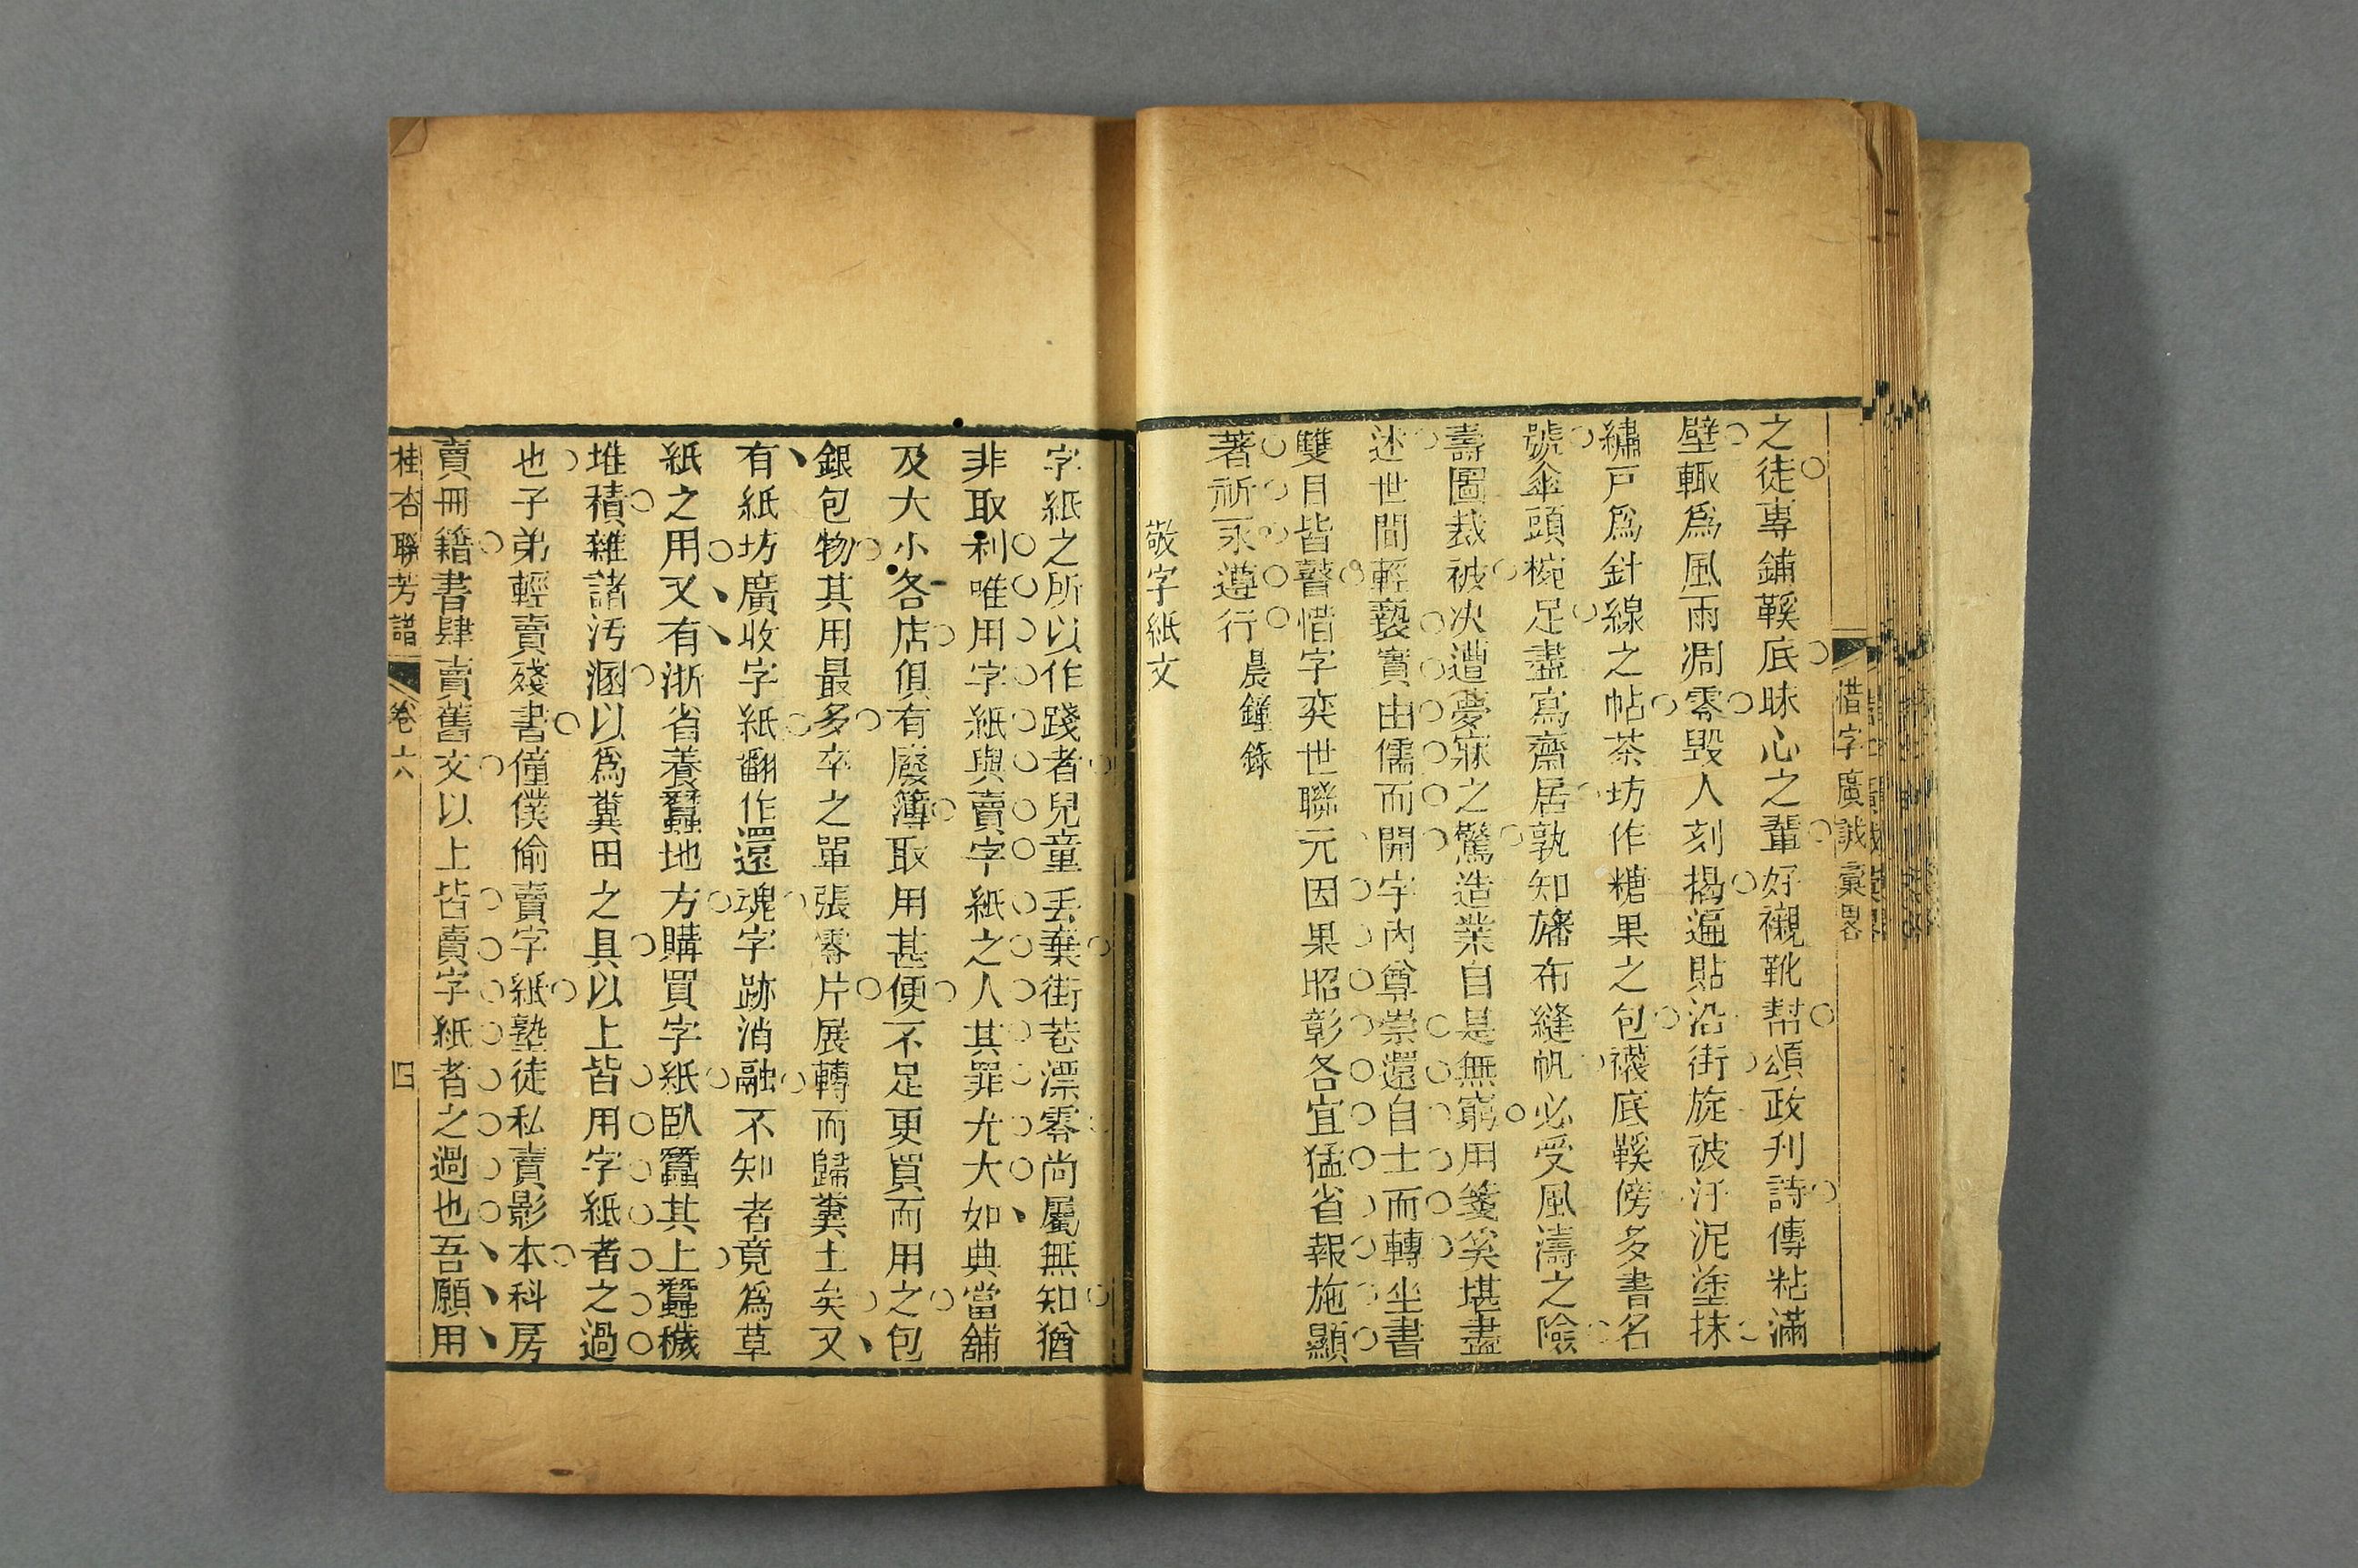 惜字廣誠彙畧
之徒專鋪鞵底昧心之輩好襯靴幫頌政刋詩傳粘滿
壁輙爲風雨凋零毀人刻揭遍貼沿街旋被汙泥塗抹
繡戸爲針線之帖茶坊作糖果之包襪底鞵傍多書名
號傘頭椀足盡寫齋居孰知旛布縫帆必受風濤之險
壽圖裁被次遭夢寐之驚造業自是無窮用箋奚堪盡
述世間輕褻實由儒而開宇內尊崇還自士而轉坐書
雙目皆瞽惜字奕世聯元因果昭彰各宜猛省報施顯
著祈永遵行 晨鐘錄
敬字紙文
字紙之所以作踐者兒童丢棄街巷漂零尚屬無知猶
非取利唯用字紙與賣字紙之人其罪尤大如典當舖
及大小各店俱有廢簿取用甚便不足更買而用之包
銀包物其用最多卒之單張零片展轉而歸糞土矣又
有紙坊廣收字紙翻作還魂字跡消融不知者竟爲草
紙之用又有浙省養蠶地方購買字紙臥蠶其上蠶穢
堆積雜諸汚溷以爲糞田之具以上皆用字紙者之過
也子弟輕賣殘書僮僕偷賣字紙塾徒私賣影本科房
賣冊籍書肆賣舊文以上皆賣字紙者之過也吾願用
桂杏聯芳譜 卷六 四